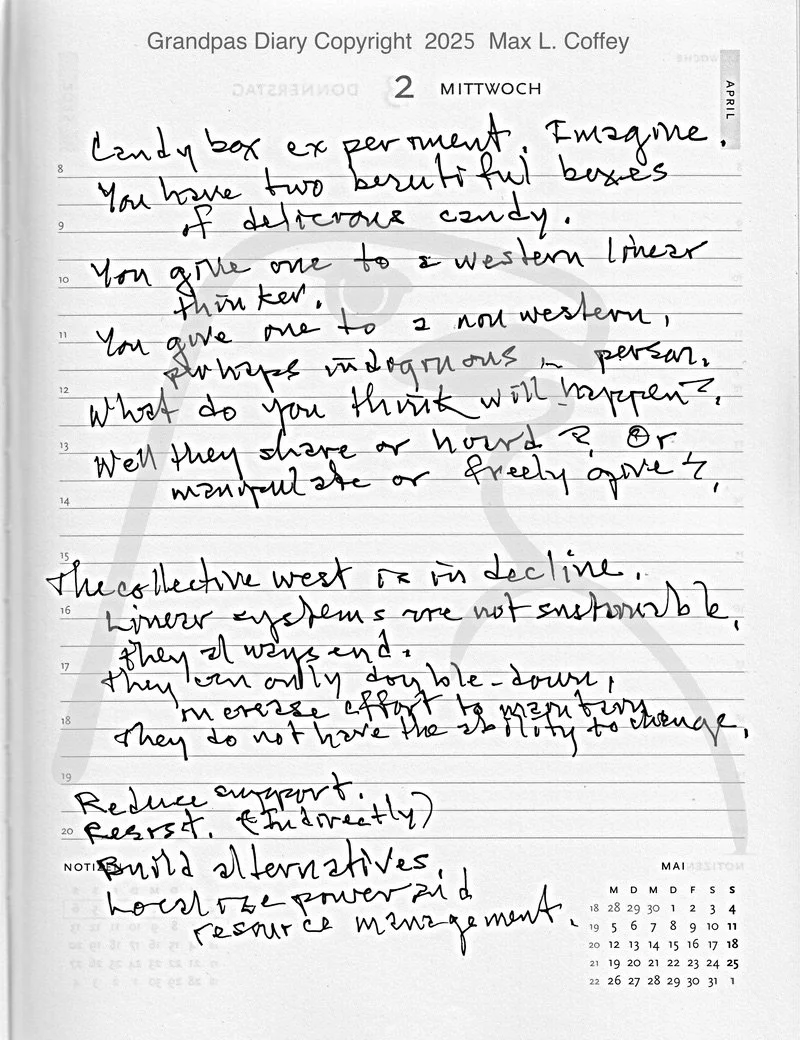 Grandpas Diary Copyright 2025 Max L. Coffey
2 MITTWOCH
APRIL
Candy box experiment. Imagine.
8
You have two beautiful boxes
of delicious candy.
9
You give one to a western linear
10
thinker.
You give one to a non western,
11
perhaps indoginous in person.
12
What do you think will happen?.
13
Well they share or hoard? Or
manipulate or freely give?.
14
15
The collective west is in decline.
16
Linear systems are not sustainable.
they always end.
17
They can only double-down,
increase effort to maintain.
18
They do not have the ability to change.
19
Reduce support.
20
Resist. (Indirectly)
NOTIZEN
Build alternatives.
Localize power and
resource management.
MAI
M D M D F S S
18 28 29 30 1 2 3 4
19 5 6 7 8 9 10 11
20 12 13 14 15 16 17 18
21 19 20 21 22 23 24 25
22 26 27 28 29 30 31 1